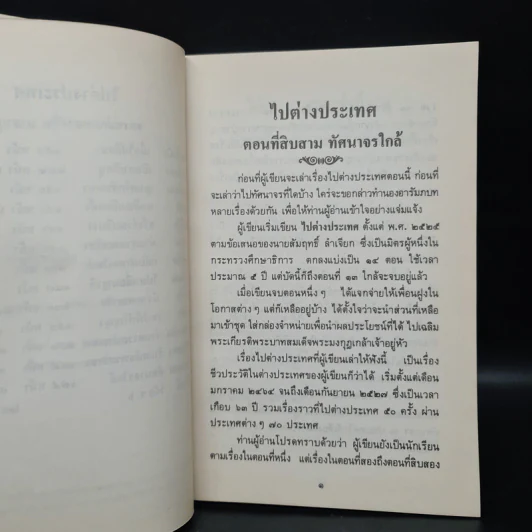 ไปต่างประเทศ
ตอนที่สิบสาม ทัศนาจรใกล้
ก่อนที่ผู้เขียนจะเล่าเรื่องไปต่างประเทศตอนนี้ ก่อนที่
จะเล่าว่าไปทัศนาจรที่ใดบ้าง ใคร่จะขอกล่าวทำนองอารัมภบท
หลายเรื่องด้วยกัน เพื่อให้ท่านผู้อ่านเข้าใจอย่างแจ่มแจ้ง
ผู้เขียนเริ่มเขียน ไปต่างประเทศ ตั้งแต่ พ.ศ. ๒๕๒๕
ตามข้อเสนอของนายสัมฤทธิ์ ลำเจียก ซึ่งเป็นมิตรผู้หนึ่งใน
กระทรวงศึกษาธิการ ตกลงแบ่งเป็น ๑๔ ตอน ใช้เวลา
ประมาณ ๕ ปี แต่บัดนี้ก็ถึงตอนที่ ๑๓ ใกล้จะจบอยู่แล้ว
เมื่อเขียนจบตอนหนึ่ง ๆ ได้แจกจ่ายให้เพื่อนฝูงใน
โอกาสต่าง ๆ แต่ก็เหลืออยู่บ้าง ได้ตั้งใจว่าจะนำส่วนที่เหลือ
มาเข้าชุด ใส่กล่องจำหน่ายเพื่อนำผลประโยชน์ที่ได้ ไปเฉลิม
พระเกียรติพระบาทสมเด็จพระมงกุฎเกล้าเจ้าอยู่หัว
เรื่องไปต่างประเทศที่ผู้เขียนเล่าให้ฟังนี้ เป็นเรื่อง
ชีวประวัติในต่างประเทศของผู้เขียนก็ว่าได้ เริ่มตั้งแต่เดือน
มกราคม ๒๔๖๔ จนถึงเดือนกันยายน ๒๕๒๗ ซึ่งเป็นเวลา
เกือบ ๖๓ ปี รวมเรื่องราวที่ไปต่างประเทศ ๕๐ ครั้ง ผ่าน
ประเทศต่าง ๆ ๗๐ ประเทศ
ท่านผู้อ่านโปรดทราบด้วยว่า ผู้เขียนยังเป็นนักเรียน
ตามเรื่องในตอนที่หนึ่ง แต่เรื่องในตอนที่สองถึงตอนที่สิบสอง
๑